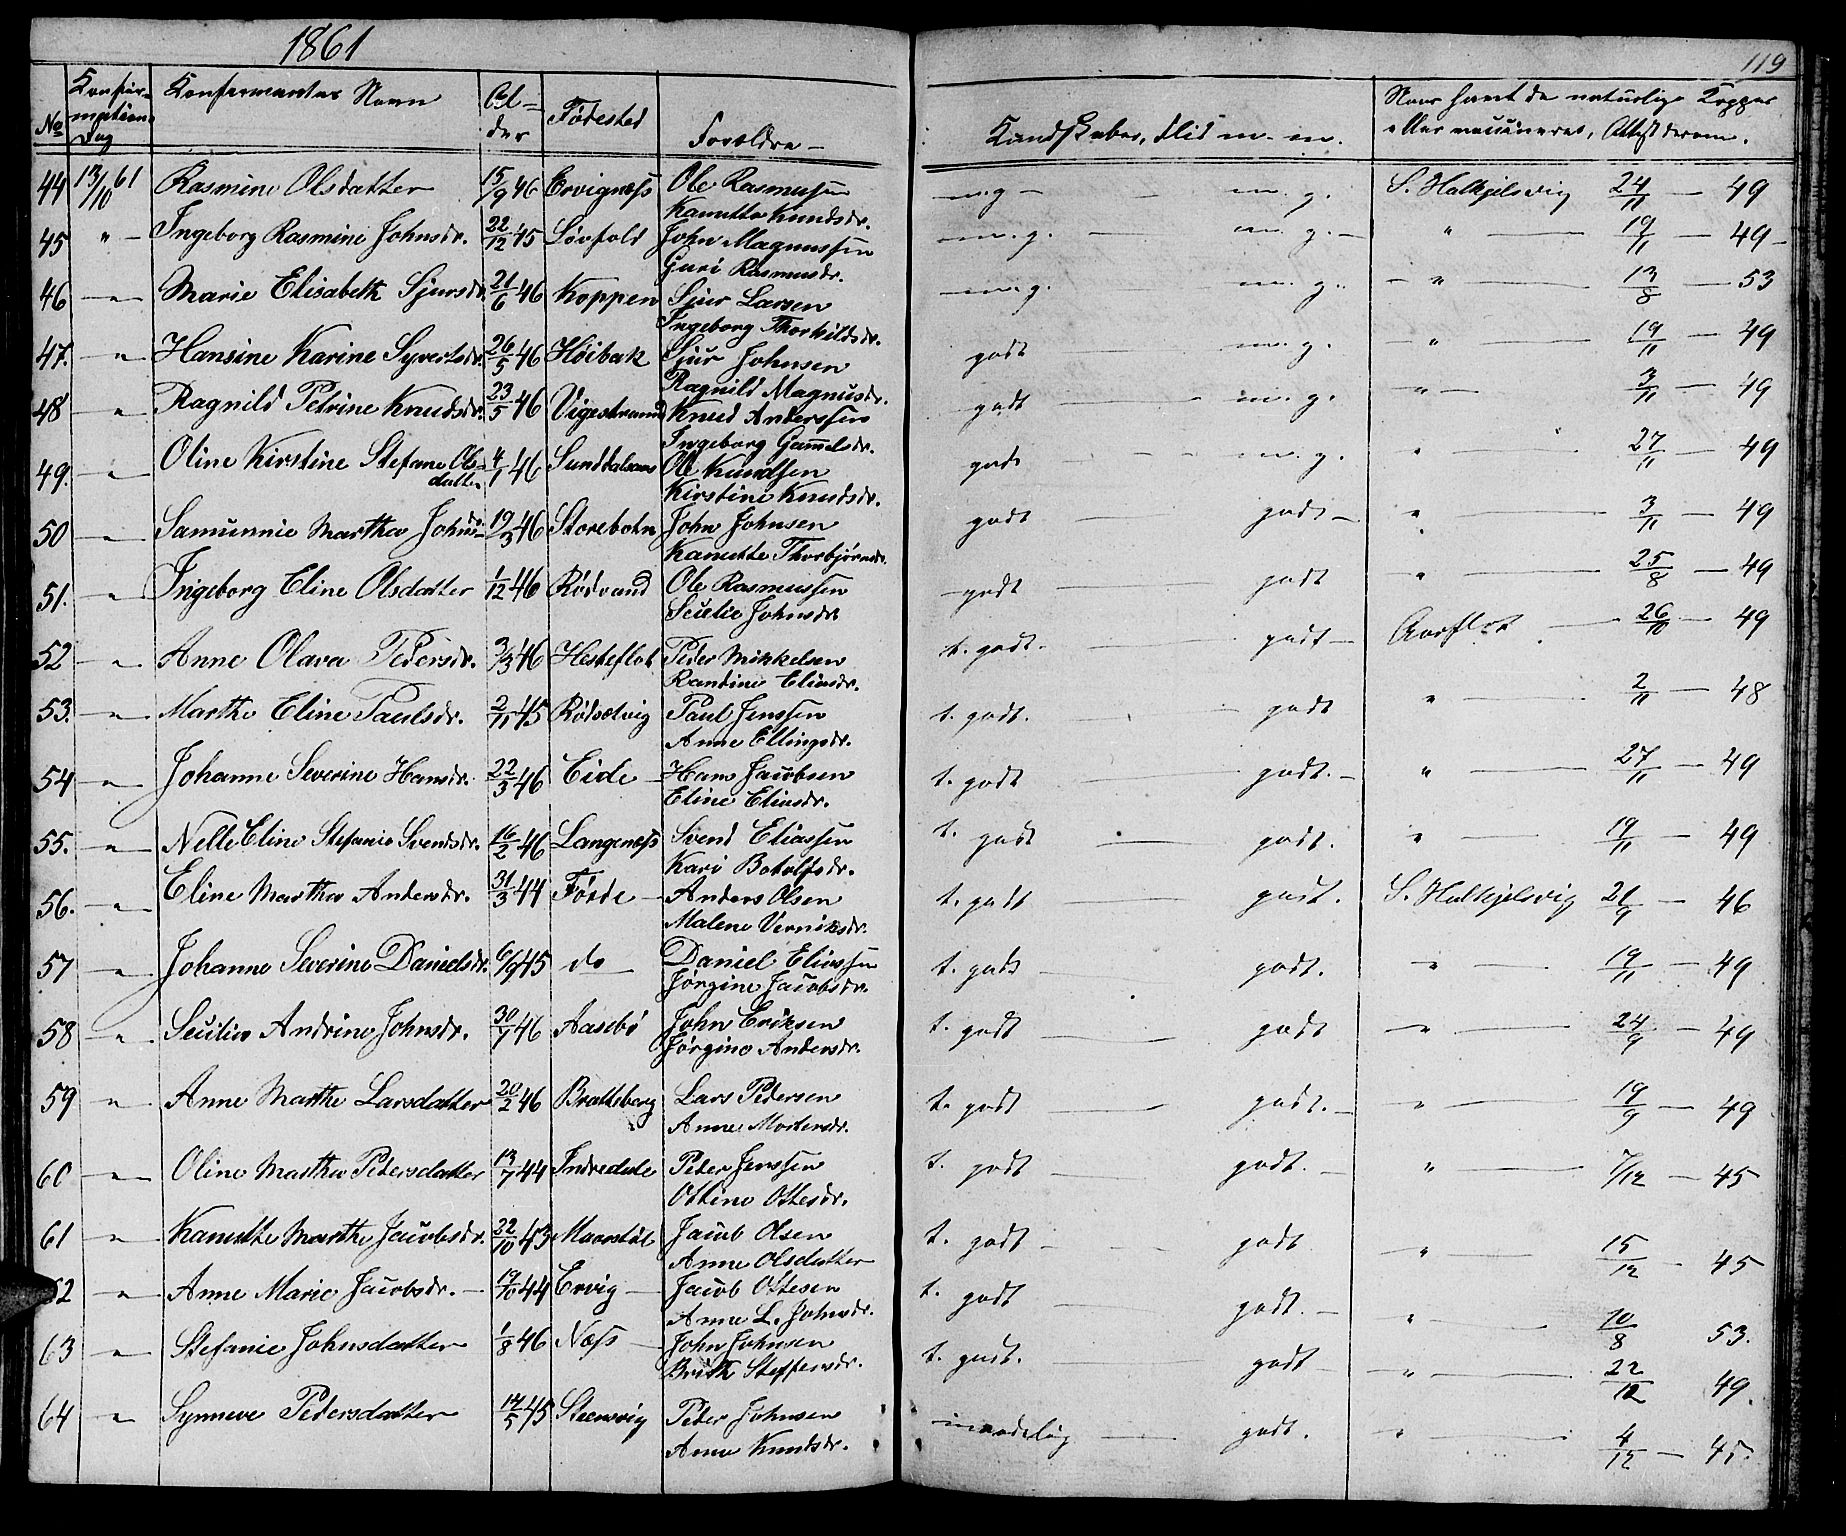 1861
119
No Konfirmations Dag Konfirmantes Navn Alder Fødested Forældre Kundskaber, Flid m. m. Naar havt de naturlige Kopper
eller vaccineret, Attest derom.
44 13/10 61 Rasmine Olsdatter 15/9 46 Ervignæss Ole Rasmussen m.g - - m. g. S. Halkjelsvig 24/11 - 49
Kanutte Knudsdr.
45 " - Ingeborg Rasmine Johnsdr. 22/12 45 Løvfold John Magnussen m. g. - m. g. - " 19/11 - 49 -
Guri Rasmusdr.
46 - " - Marie Elisabeth Sjursdr. 21/6 46 Koppen Sjur Larsen m. g. m. g. - " - 13/8 - 53
Ingeborg Thorkildsdr.
47. - " Hansine Karine Syvertsdr. 26/5 46 Høibak Sjur Johnsen godt - m. g. - " - 19/11 - 49
Ragnild Magnusdr.
48 - " Ragnild Petrine Knudsdr. 23/5 46 Vigestrand Knud Anderssen godt - m. g. " - 3/11 - 49
Ingeborg Gamelsdr.
49. - " Oline Kirstine Stefane Ols- 4/1 46 Ole Knudsen godt - m. g. " - 27/11 - 49
datter
Kirstine Knudsdr.
50 - " - Samunnie Marthe Johnsdr 19/3 46 Storebotn John Johnsen godt godt - " - 3/11 - 49
Kanutte Thorbjørnsdr.
51. - " Ingeborg Eline Olsdatter 1/12 46 Rødvand Ole Rasmussen godt - godt " - 25/8 - 49
Scielie Johnsdr.
52 - " Anne Olava Pedersdr. 3/3 46 Hesteflot Peder Mikkelsen t. godt. - godt - Aarflot - 26/10 - 49
Randine Eliasdr.
53. - " - Marthe Eline Paulsdr. 2/11 45 Rødsætvig Paul Jenssen t. godt. - godt " - 2/11 - 48
Anne Ellingsdr.
54 - " - Johanne Severine Hansdr. 22/3 46 Eide - Hans Jacobsen t. godt - godt. - " - 27/11 - 49
Eline Eliasdr.
55. - " - Nelle Eline Stefanie Svendsdr. 16/2 46 Langenæss Svend Eliassen t. godt - godt. " - 19/11 - 49
Kari Botolfsdr.
56. - " - Eline Marthe Andersdr. 31/3 44 Førde - Anders Olsen t. godt - godt. S. Halkjelsvig 21/9 - 46
Malene Verniksdr.
57 - " Johanne Severine Danielsdr. 6/9 45 do - Daniel Eliassen t. godt - godt. - " - 19/11 - 49
Jørgine Jacobsdr.
58 - " Scielie Andrine Johnsdr. 30/7 46 Aasebø John Eriksen t. godt - godt - " - 24/9 - 49
Jørgine Andersdr.
59 - " - Anne Marthe Larsdatter 20/2 46 Bratteberg Lars Pedersen t. godt - godt. - " - 19/9 - 49
Anne Mortensdr.
60 - " - Oline Marthe Pedersdatter 13/7 44 Indredale Peder Jenssen t. godt - godt. - " - 7/12 - 45
Olline Ottesdr.
61 - " Kanutte Marthe Jacobsdr. 22/10 43 Maarstøl Jacob Olsen t. godt - godt " - 15/12 - 45
Anne Olsdatter
62 - " Anne Marie Jacobsdr. - 19/10 44 Ervig - Jacob Ottesen t. godt - godt. - " - 10/8 53.
Anne L. Johnsdr.
63 - " Stefanie Johnsdatter 1/8 46 Næss - John Johnsen t. godt. - godt - " - 22/12 49.
Brith Steffensdr.
64 - " Synneve Pedersdatter 14/5 45 Steensvig Peder Johnsen maadelig - godt. " - 4/12 - 45.
Anne Knudsdr.